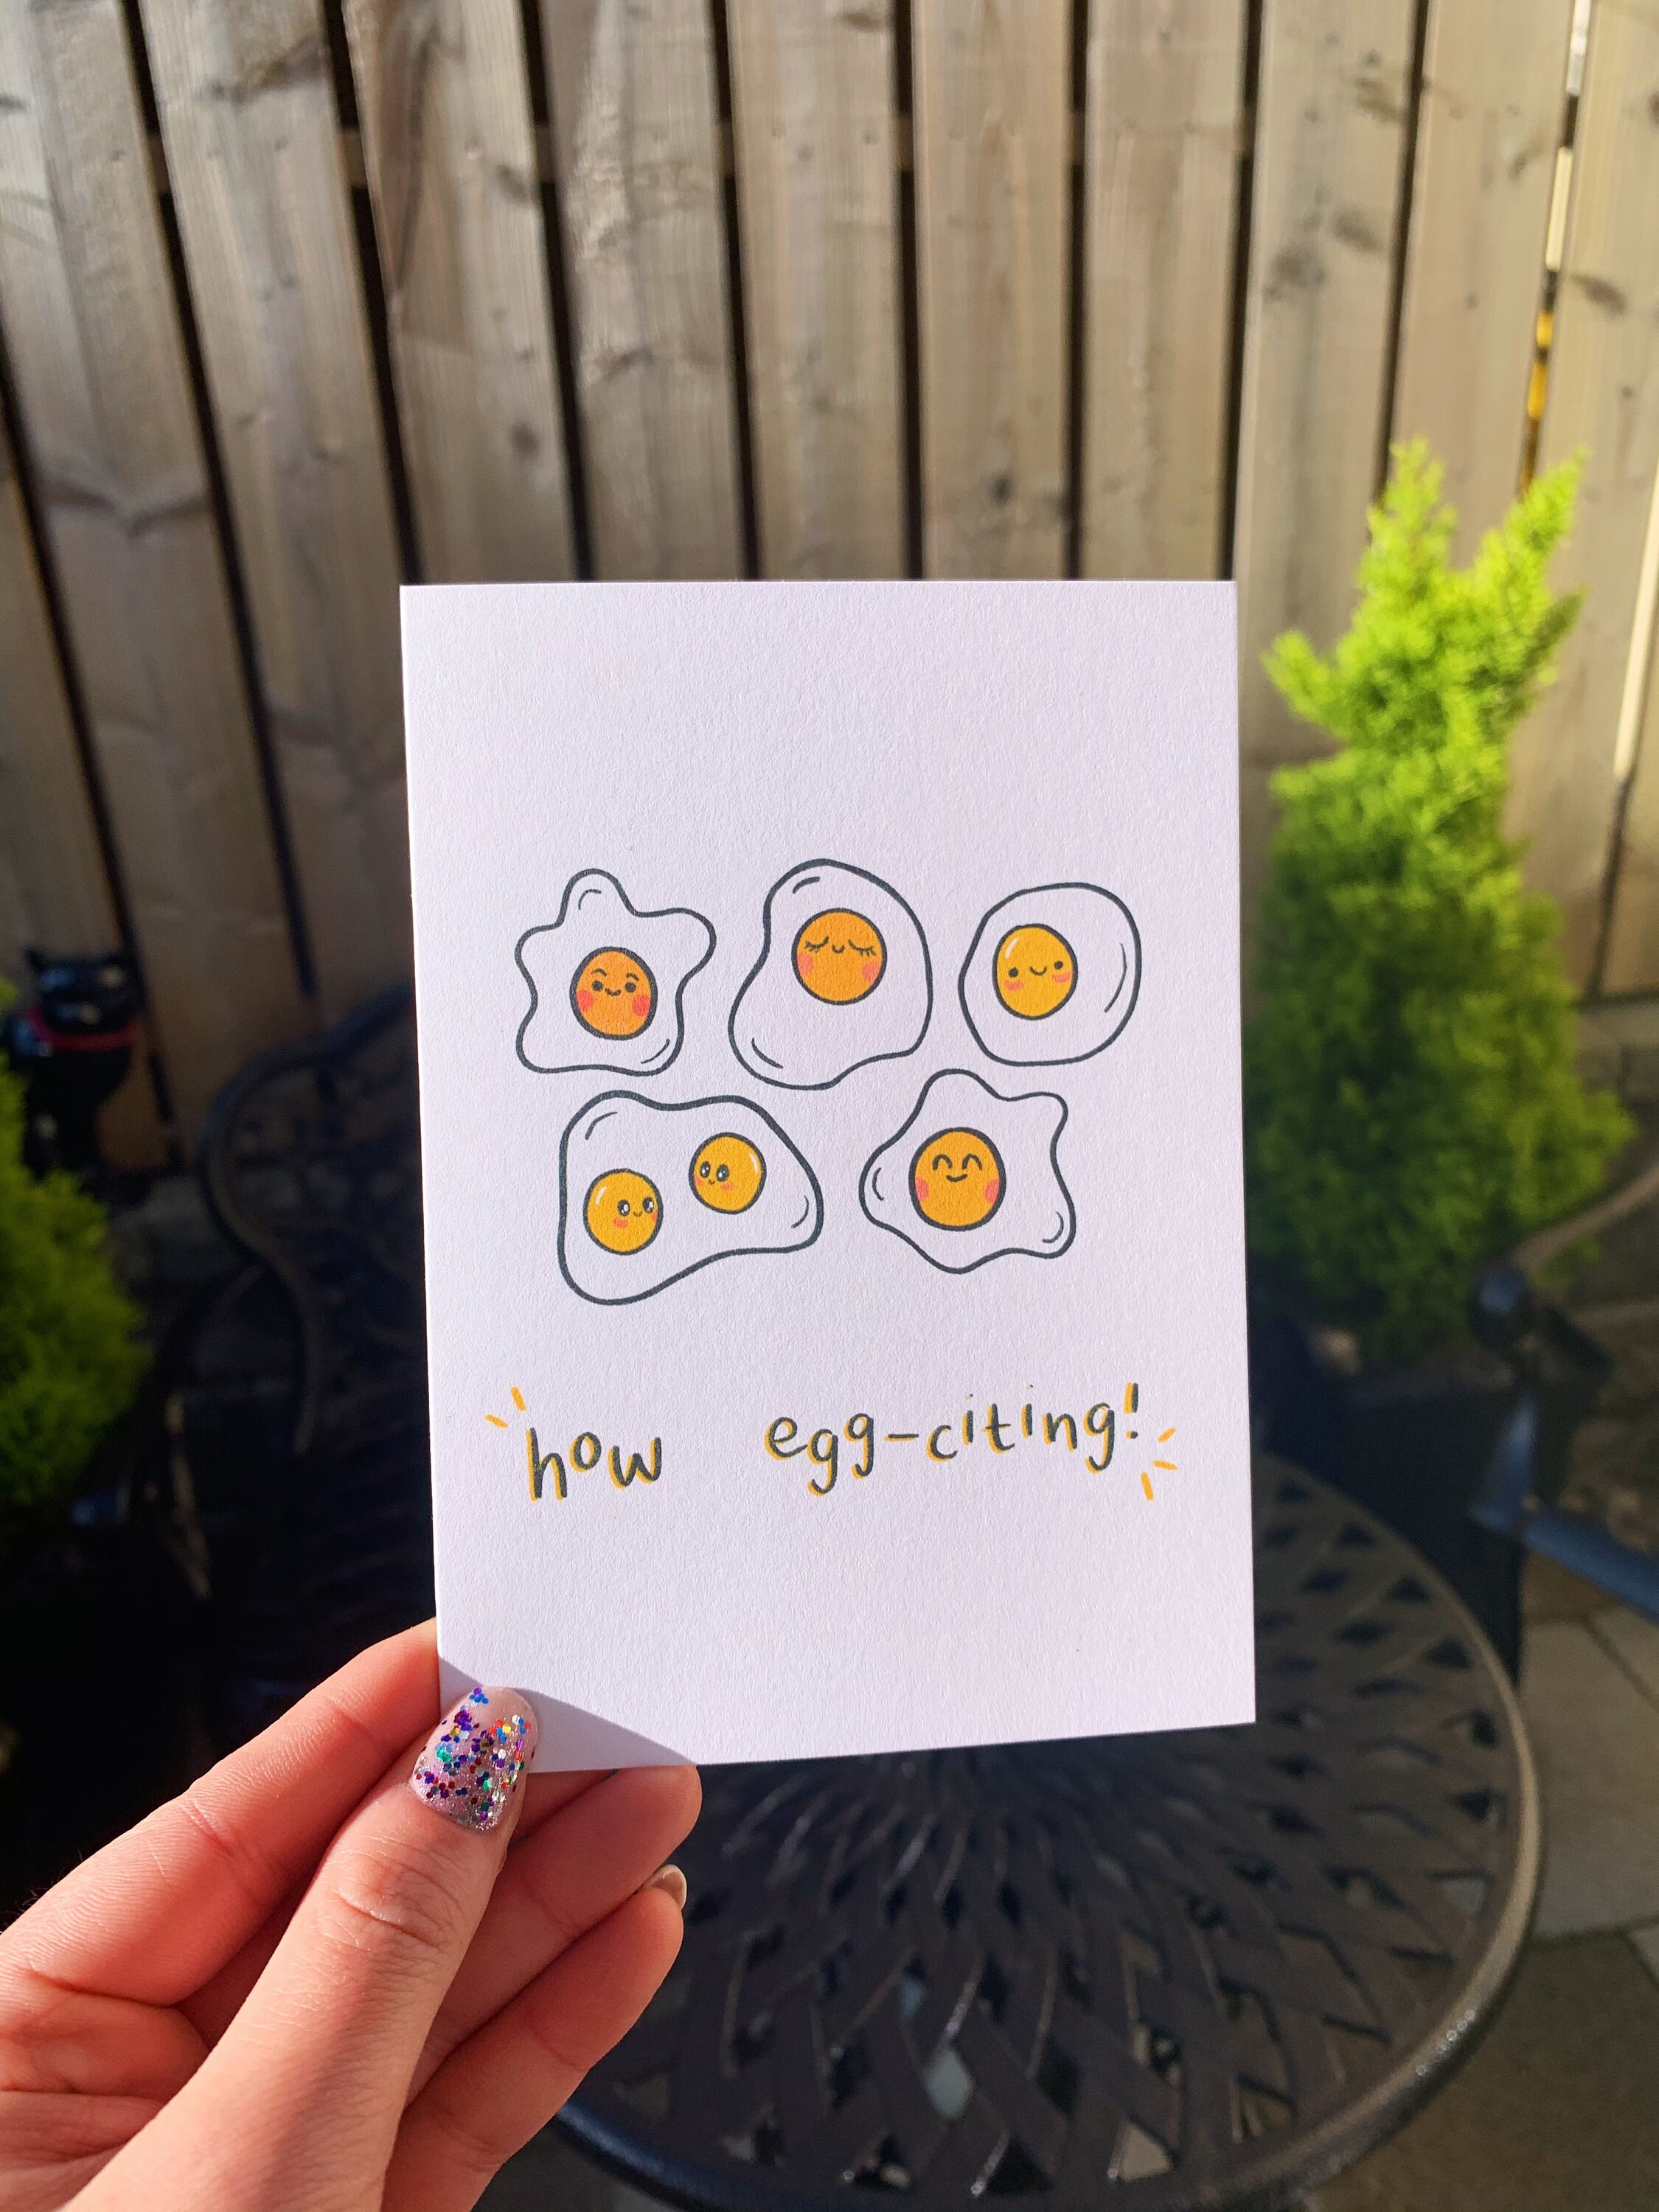 how egg-citing!